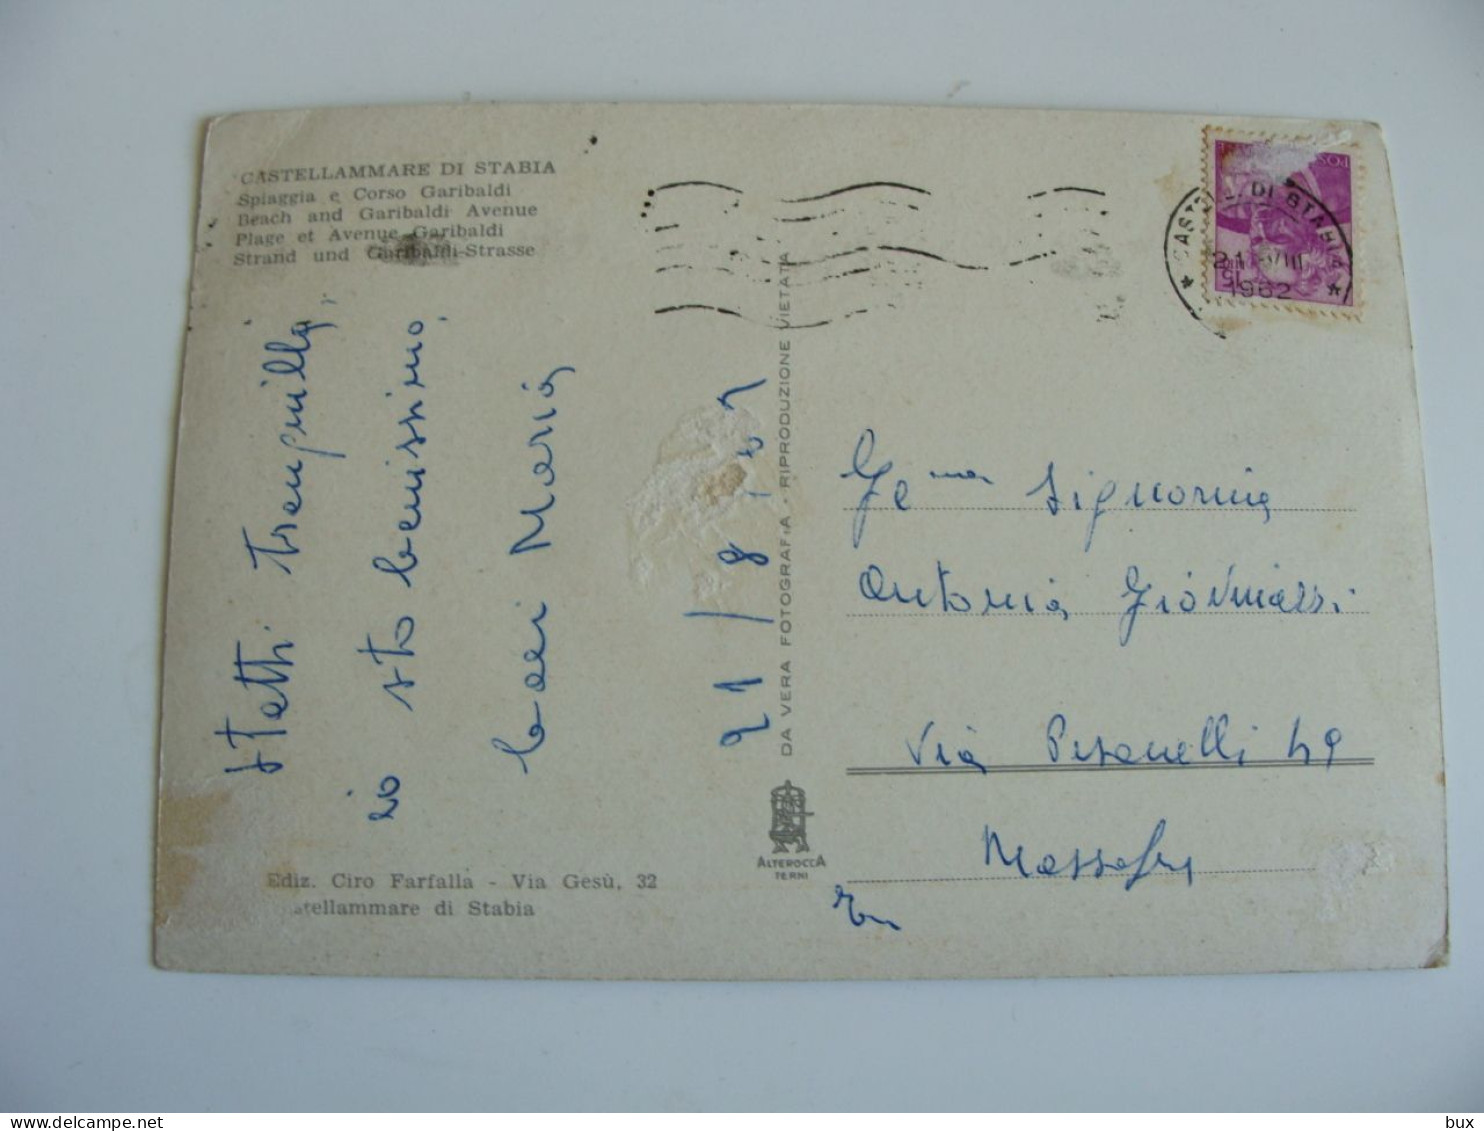 CASTELLAMMARE DI STABIA
Spiaggia e Corso Garibaldi
Beach and Garibaldi Avenue
Plage et Avenue Garibaldi
Strand und Garibaldi-Strasse
Statti tranquilla,
io sto benissimo,
baci Maria
21/8/62
DA VERA FOTOGRAFIA - RIPRODUZIONE VIETATA
ALTEROCCA
TERNI
Ediz. Ciro Farfalla - Via Gesù, 32
stellammare di Stabia
DI STABIA
21 VIII
1962
Ge ma Signorina
Antonia
Via Pisanelli 49
Massafra
bux